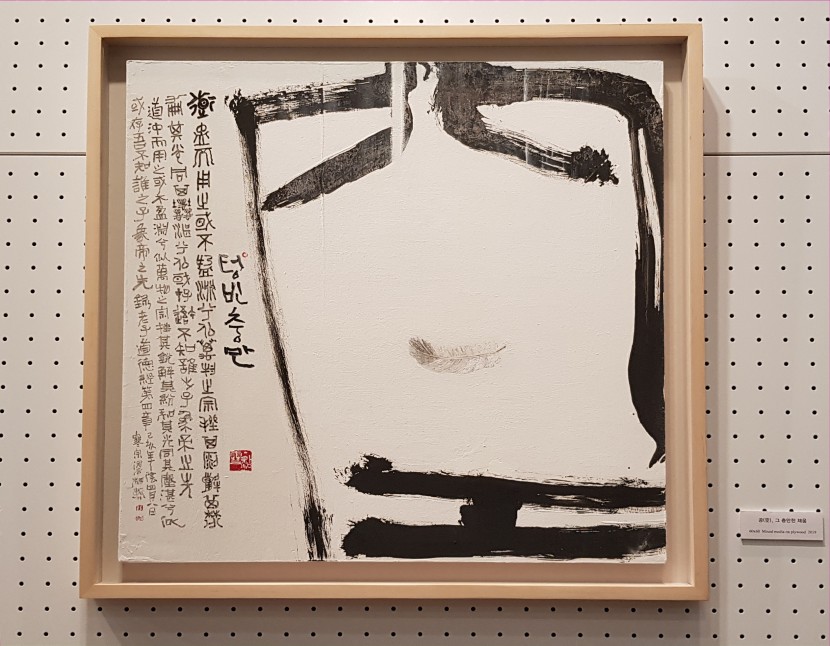 텅빈충만
道盅而用之或不盈淵兮似萬物之宗挫其銳解其紛
龢其光同其塵湛兮似或存吾不知誰之子象帝之先
道沖而用之或不盈淵兮似萬物之宗挫其銳解其紛和其光同其塵湛兮似
或存吾不知誰之子象帝之先 錄老子道德經第四章
공(空), 그 충만한 채움
Mixed media on plywood 2019